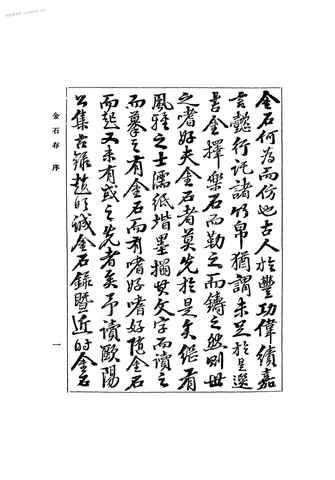 金石何為而仿也古人於豐功偉績嘉
言懿行託諸竹帛猶謂未足於是選
吉金擇樂石而勒之而鑄之然則世
之嗜好夫金石者莫先於是矣繼有
風雅之士濡紙揩墨搨其文字而讀之
而摹之有金石而有嗜好嗜好隨金石
而起又未有或之先者矣予讀歐陽
公集古錄趙明誠金石錄暨近時金石
金石存 序
一